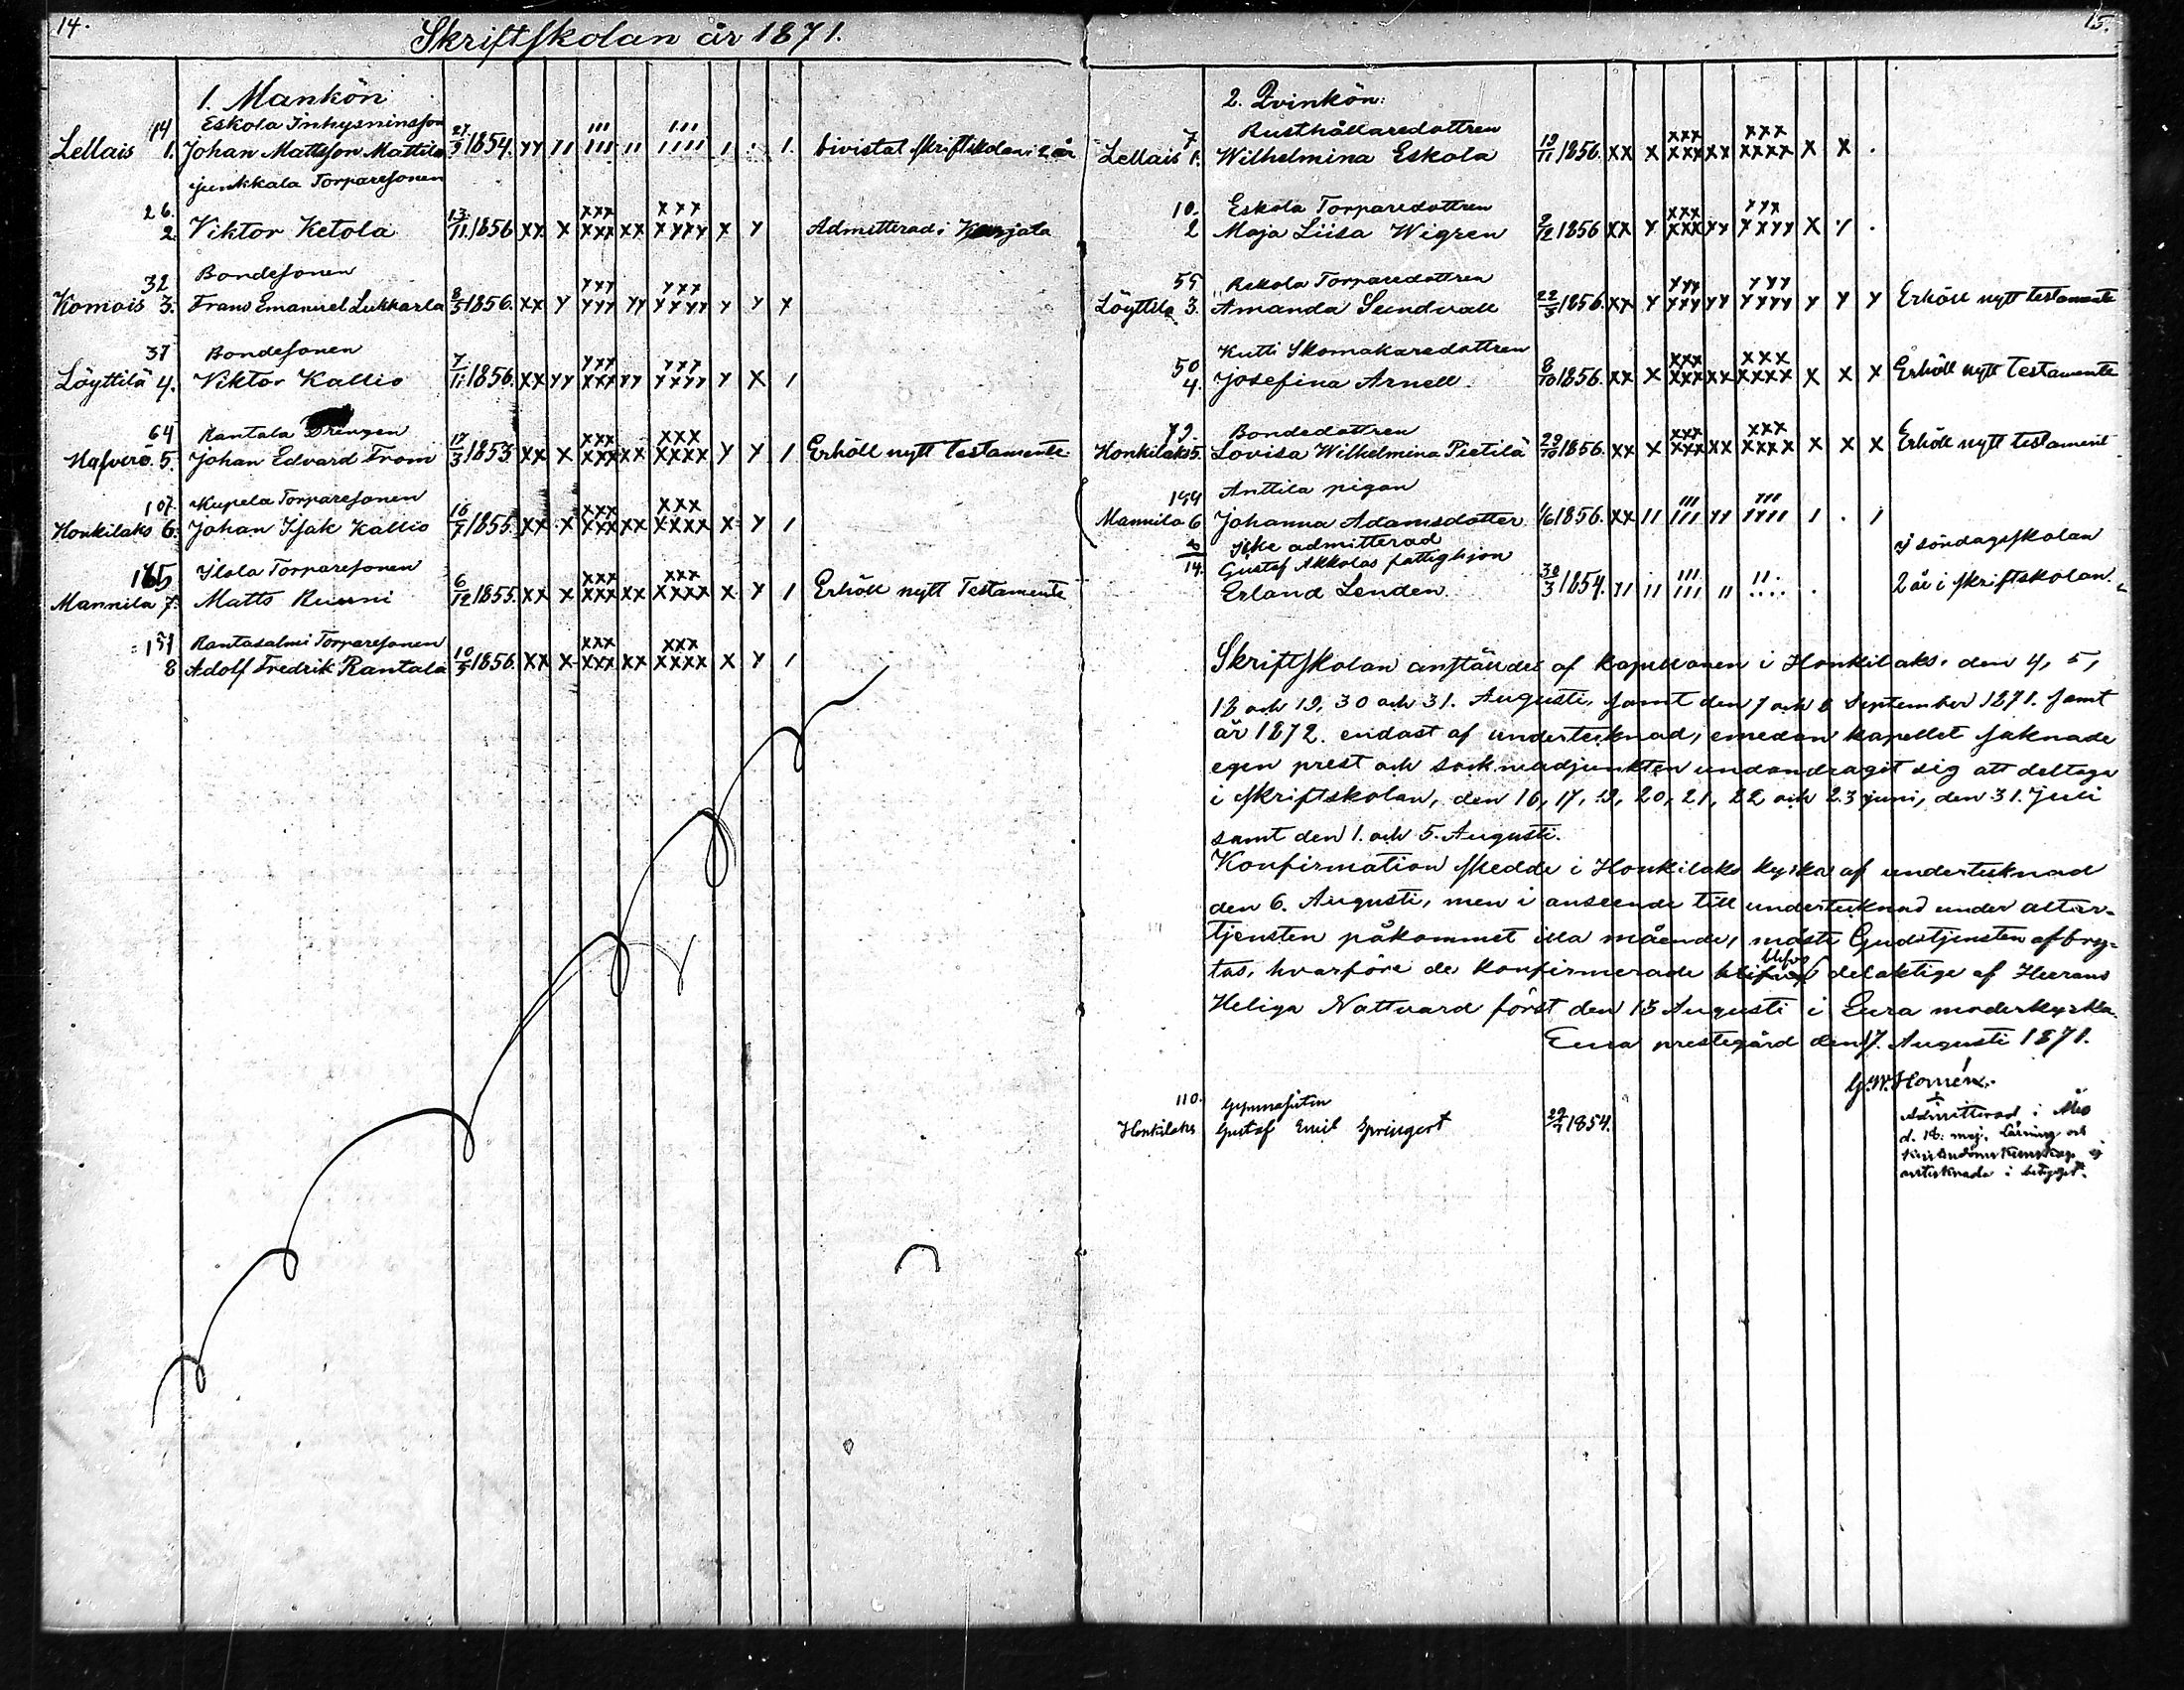 14.
Skriftskolan år 1871.
1. Mankön
14 Eskola Inhysningsson
Lellais 1. Johan Mattsson Mattila 27/9 1854. yy 11 111 111 11 111 1111 1 . 1. bivistat skriftskolan i 2 år
Junkkala Torparesonen
26.
2. Viktor Ketola 13/11 1856 xx x xxx xxx xx xxx xyyy x y Admitterad i
32 Bondesonen
Komois 3. Frans Emanuel Lukkarla 8/5 1856. xx y yyy yyy yy yyy xyyy y y x
37 Bondesonen
Löyttilä 4. Viktor Kallio 7/11 1856. xx yy yyy xxx yy yyy yyyy y x 1
64 Rantala Drengen
Hafvero. 5. Johan Edvard From 17/3 1853 xx x xxx xxx xx xxx xxxx y y 1 Erhöll nytt Testamente
107. Kupela Torparesonen
Honkilaks 6. Johan Isak Kallio 16/7 1855. xx x xxx xxx xx xxx xxxx x y 1
165 Ilola Torparesonen
Mannila 7. Matts Ruuni 6/12 1855. xx x xxx xxx xx xxx xxxx x y 1 Erhöll nytt Testamente
151 Rantasalmi Torparesonen
8 Adolf Fredrik Rantala 10/5 1856. xx x xxx xxx xx xxx xxxx x y 1
15.
2. Qvinkön:
7 Rusthållaredottren
Lellais 1. Wilhelmina Eskola 19/11 1856. xx x xxx xxx xx xxx xxxx x x .
10. Eskola Torparedottren
2 Maja Liisa Wigren 9/12 1856 xx y xxx xxx yy yyx xxyy x y .
55 Askola Torparedottren
Löyttilä 3. Amanda Sundvall 22/5 1856. xx y yyy yyy yy yyy yyyy y y y Erhöll nytt testamente
50 Kutti Skomakaredottren
4. Josefina Arnell. 8/10 1856. xx x xxx xxx xx xxx xxxx x x x Erhöll nytt Testamente
79. Bondedottren
Honkilaks 5. Lovisa Wilhelmina Pietilä 29/10 1856. xx x xxx xxx xx xxx xxxx x x x Erhöll nytt testament
144 Anttila pigan
Mannila 6 Johanna Adamsdotter 1/6 1856. xx 11 111 111 yy yyy 1y11 1 . 1
Icke admitterad
14. Gustaf Akkolas fattighjon
I söndagsskolan
Erland Lenden. 30/3 1854. y1 11 111 111 11 11. .... . 2 år i skriftskolan.
Skriftskolan anställdes af kapellanen i Honkilaks. den 4, 5,
18 och 19, 30 och 31. Augusti, samt den 7 och 8 September 1871. samt
år 1872. endast af undertecknad, emedan kapellet saknade
egen prest och sockneadjunkten undandragit sig att deltaga
i skriftskolan, den 16, 17, 19, 20, 21, 22 och 23 juni, den 31. Juli
samt den 1. och 5. Augusti.
Konfirmation skedde i Honkilaks kyrka af undertecknad
den 6. Augusti, men i anseende till undertecknad under altar-
tjensten påkommet illa mående, måste Gudstjensten afbry-
tas, hvarföre de konfirmerade blefvo delaktige af Herrans
Heliga Nattvard först den 13 Augusti i Eura moderkyrka.
Eura prestegård den 17. Augusti 1871.
G. W. Homén.
110. Gymnasisten
Honkilaks Gustaf Emil Springert 29/7 1854. Admitterad i Åbo
d. 18. maj. Läsning och
Kristendoms Kunskap ej
antecknade i betyget.